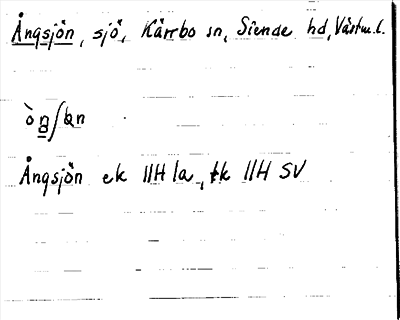 Ångsjön, sjö, Kärrbo sn, Siende hd, Västm.l.
Ångsjön ek 11H 1a, tk 11H SV